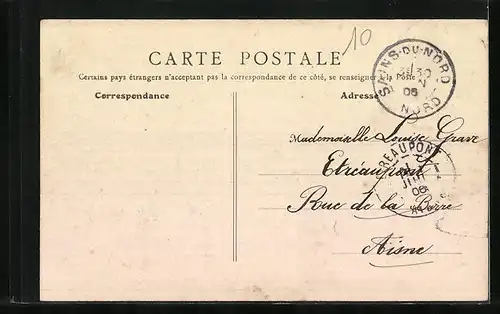 10
CARTE POSTALE
Certains pays étrangers n'acceptant pas la correspondance de ce côté, se renseigner à la Poste
Correspondance
Adresse
SAINS-DU-NORD
06
NORD
Mademoiselle Louise Grave
Etréaupont
Rue de la Barre
Aisne
ETREAUPONT
06